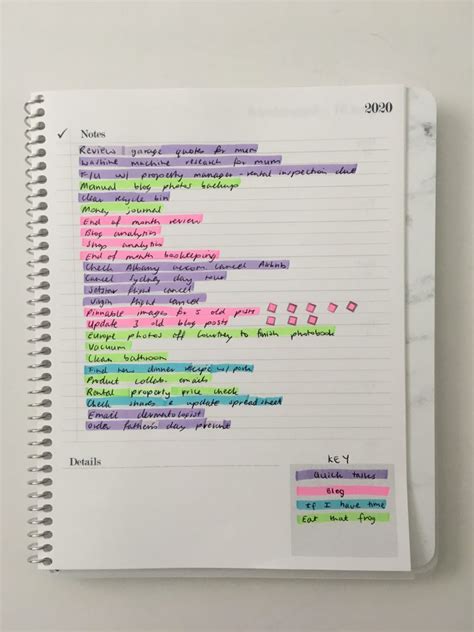 2020
✓ Notes
Review garage quotes for mum
Washine machine research for mum
F/U w/ property manager - rental inspection due
Manual blog photos backup
Clear recycle bin
Money journal
End of month review
Blog analytics
Shop analytics
End of month bookkeeping
Check Albany accom. cancel Airbnb
Cancel Sydney day tour
Jetstar flight cancel
Virgin flight cancel
Pinnable images for 5 old posts
Update 3 old blog posts
Europe photos off Courtney to finish photobook
Vacuum
Clean bathroom
Find new dinner recipe w/ pasta
Product collab. emails
Rental property price check
Check shares & update spreadsheet
Email dermatologist
Order father's day present
Details
KEY
Quick tasks
Blog
If I have time
Eat that frog